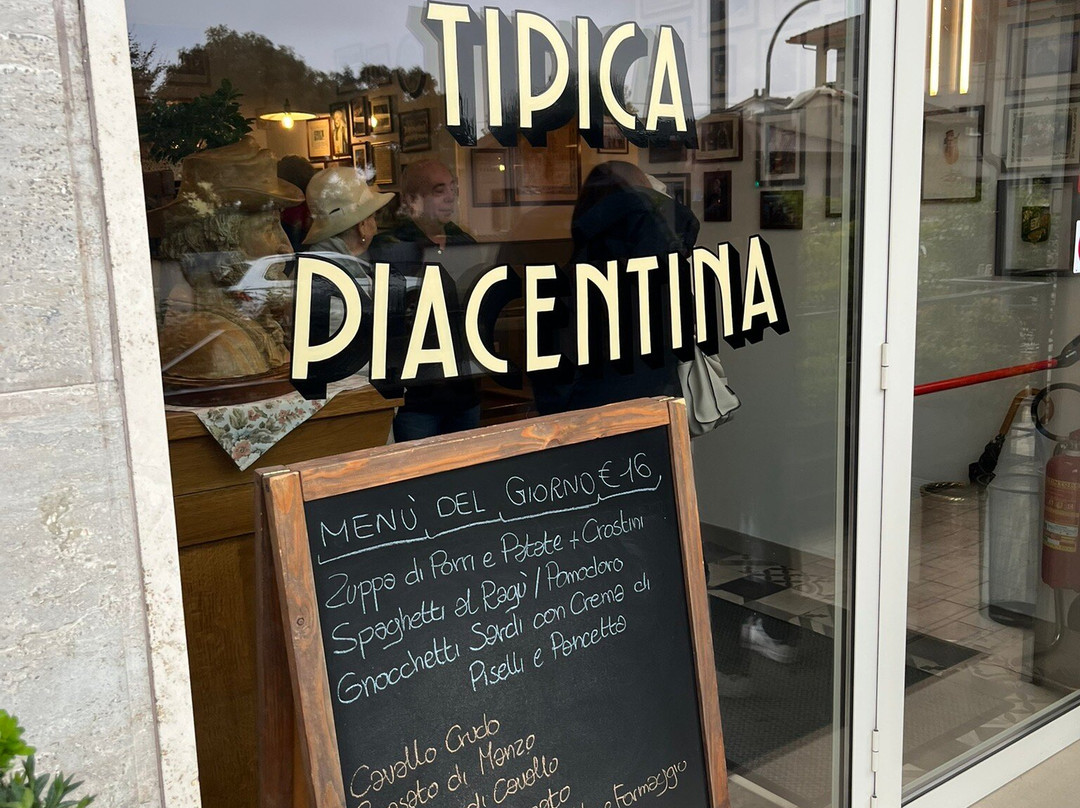 TIPICA
PIACENTINA
MENÙ DEL GIORNO € 16
Zuppa di Porri e Patate + Crostini
Spaghetti al Ragù / Pomodoro
Gnocchetti Sardi con Crema di
Piselli e Pancetta
Cavallo Crudo
di Manzo
di Cavallo
e Formaggio